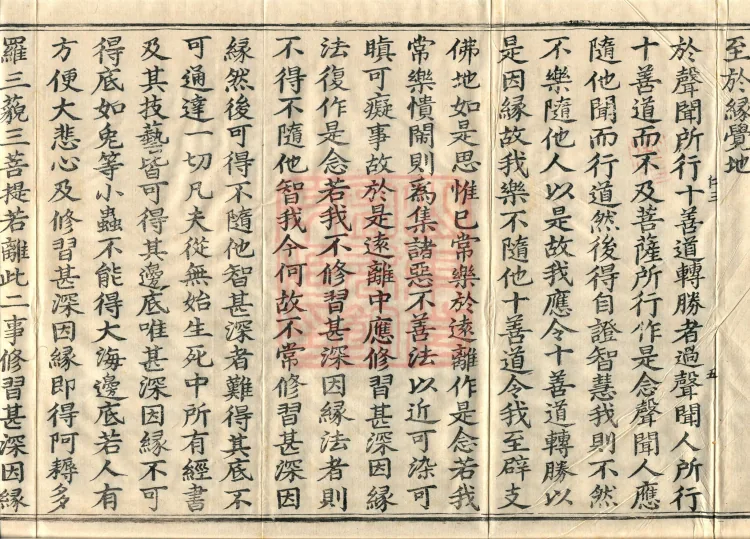 至於緣覺地
於聲聞所行十善道轉勝者過聲聞人所行
十善道而不及菩薩所行作是念聲聞人應
隨他聞而行道然後得自證智慧我則不然
不樂隨他人以是故我應令十善道轉勝以
是因緣故我樂不隨他十善道令我至辟支
佛地如是思惟已常樂於遠離作是念若我
常樂憒閙則為集諸惡不善法以近可染可
瞋可癡事故於是遠離中應修習甚深因緣
法復作是念若我不修習甚深因緣法者則
不得不隨他智我今何故不常修習甚深因
緣然後可得不隨他智甚深者難得其底不
可通達一切凡夫從無始生死中所有經書
及其技藝皆可得其邊底唯甚深因緣不可
得底如兎等小蟲不能得大海邊底若人有
方便大悲心及修習甚深因緣即得阿耨多
羅三藐三菩提若離此二事修習甚深因緣